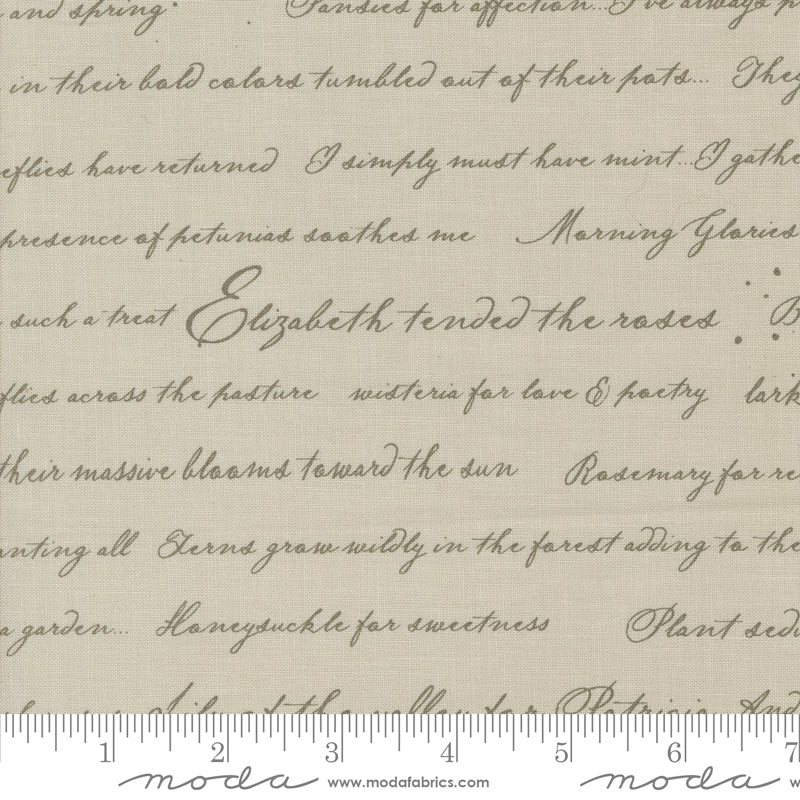 and spring Pansies for affection...I've always
in their bold colors tumbled out of their pots... They
eflies have returned I simply must have mint...I gathe
presence of petunias soothes me Morning Glories
such a treat Elizabeth tended the roses B
flies across the pasture wisteria for love & poetry lark
their massive blooms toward the sun Rosemary for re
anting all Ferns grow wildly in the forest adding to the
a garden... Honeysuckle for sweetness Plant sedu
Lily of the valley for Patricia And
1 2 3 4 5 6 7
moda www.modafabrics.com moda w